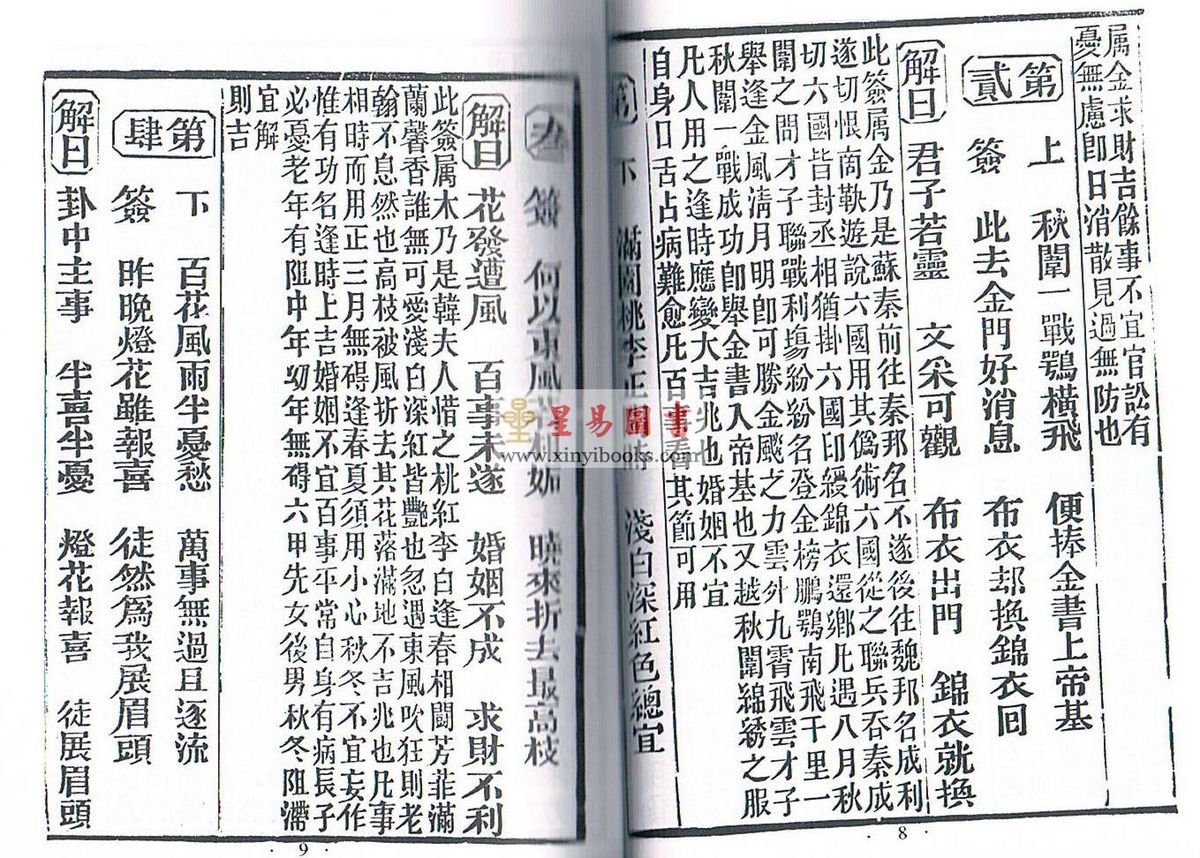 属金求財吉餘事不宜官訟有
憂無慮卽日消散見過無防也
第貳
上 秋闈一戰鶚橫飛 便捧金書上帝基
簽 此去金門好消息 布衣却換錦衣囘
解曰 君子若靈 文采可觀 布衣出門 錦衣就換
此簽属金乃是蘇秦前往秦邦名不遂後往魏邦名成利
遂切恨商鞅遊說六國用其僞術六國從之聯兵吞秦成
切六國皆封丞相猶掛六國印綬錦衣還鄉凢遇八月秋
闈之間才子聯戰利塲紛紛名登金榜鵬鶚南飛千里一
舉逢金風淸月明卽可勝金颷之力雲外九霄飛雲才子
秋闈一戰成功卽舉金書入帝基也又越秋闈綿綉之服
凢人用之逢時應變大吉兆也婚姻不宜
自身口舌占病難愈凢百事看其節可用
第
下 滿園桃李正 淺白深紅色總宜
叁
簽 何以東風 曉來折去最高枝
解曰 花發遭風 百事未遂 婚姻不成 求財不利
此簽属木乃是韓夫人惜之桃紅李白逢春相鬪芳菲滿
蘭馨香誰無可愛淺白深紅皆艷也忽遇東風吹狂則老
翰不息然也高枝被風折去其花落滿地不吉兆也凢事
相時而用正三月無碍逢春夏須用小心秋冬不宜妄作
惟有功名逢時上吉婚姻不宜百事平常自身有病長子
必憂老年有阻中年㓜年無碍六甲先女後男秋冬阻滯
宜解
則吉
第肆
下 百花風雨半憂愁 萬事無過且逐流
簽 昨晚燈花雖報喜 徒然爲我展眉頭
解曰 卦中主事 半喜半憂 燈花報喜 徒展眉頭
星易圖書
www.xinyibooks.com
· 9 ·
· 8 ·